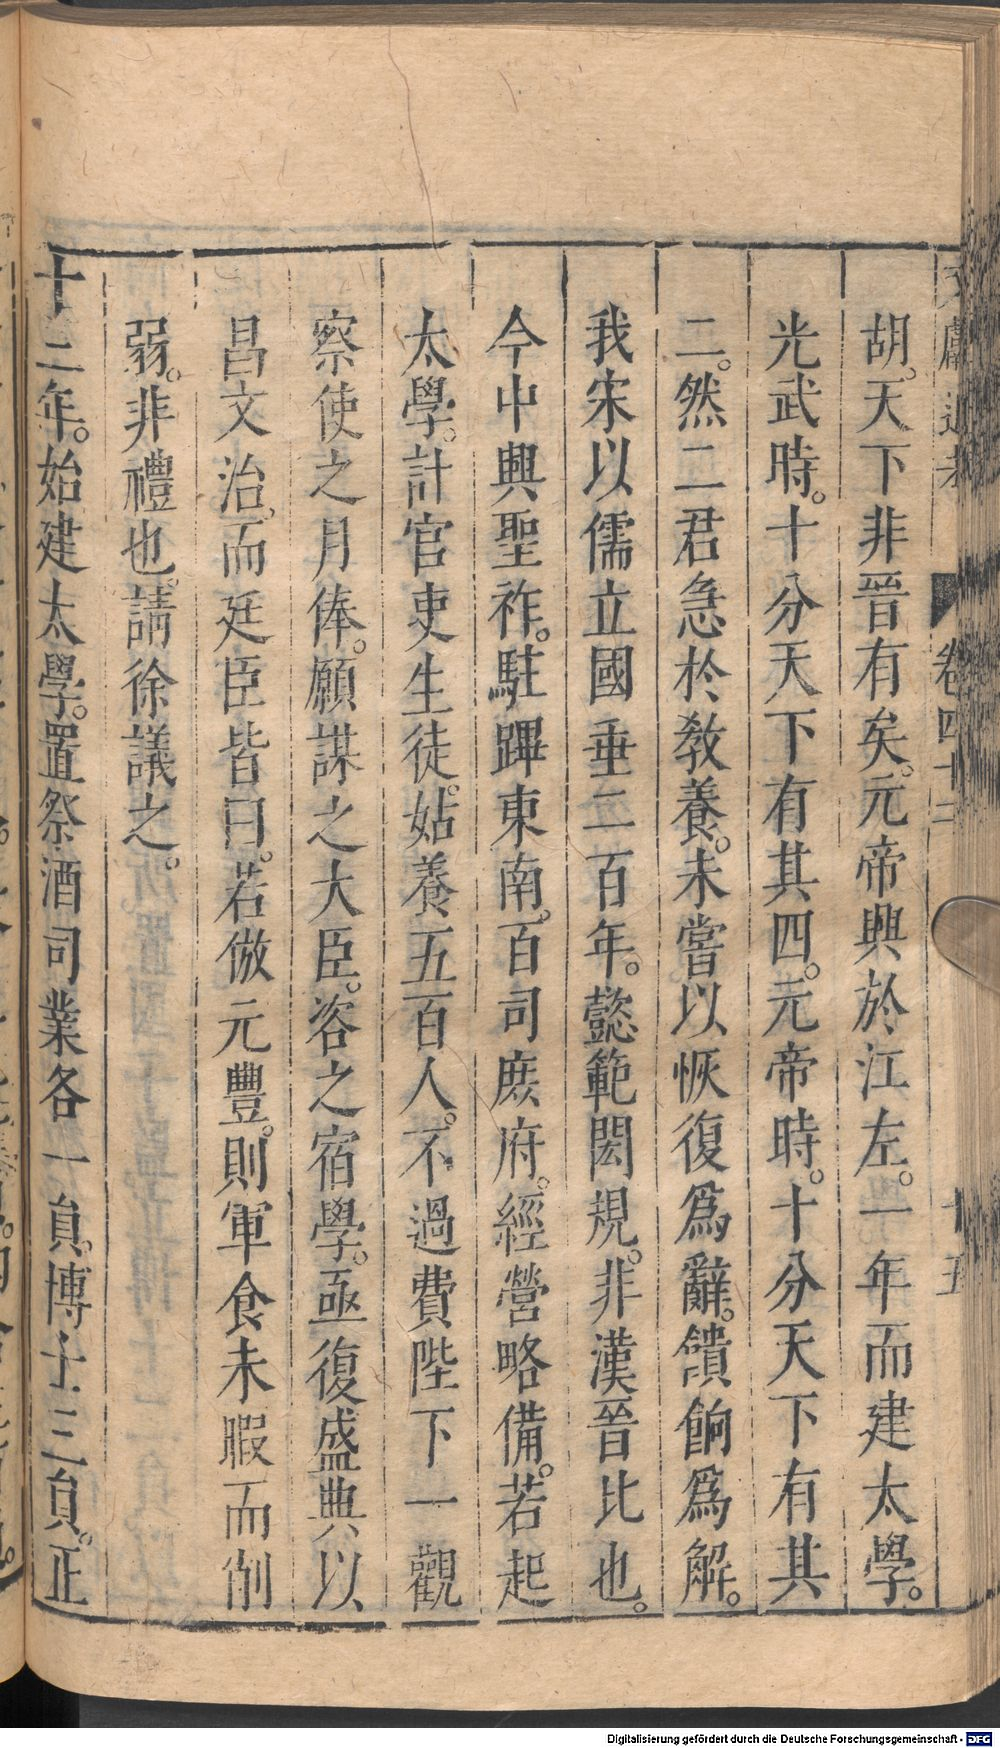 文獻通考 卷四十二 十五
胡。天下非晉有矣。元帝興於江左。一年而建太學。
光武時。十分天下有其四。元帝時。十分天下有其
二。然二君急於敎養。未嘗以恢復爲辭。饋餉爲解。
我宋以儒立國垂二百年。懿範閎規。非漢晉比也。
今中興聖祚。駐蹕東南。百司庶府。經營略備。若起
太學。計官吏生徒。姑養五百人。不過費陛下一觀
察使之月俸。願謀之大臣。咨之宿學。亟復盛典以
昌文治。而廷臣皆曰。若倣元豐。則軍食未暇而削
弱。非禮也。請徐議之。
十三年。始建太學。置祭酒司業各一員。博士三員。正
Digitalisierung gefördert durch die Deutsche Forschungsgemeinschaft - DFG